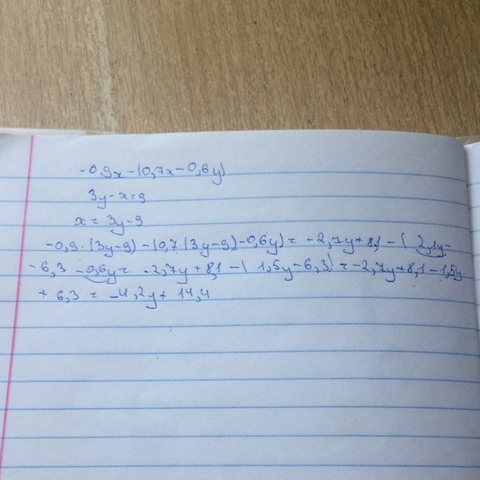 -0,9x-(0,7x-0,6y)
3y-x=9
x=3y-9
-0,9·(3y-9)-(0,7(3y-9)-0,6y)=-2,7y+8,1-(2,1y-
-6,3-0,6y=-2,7y+8,1-(1,5y-6,3)=-2,7y+8,1-1,5y
+6,3=-4,2y+14,4